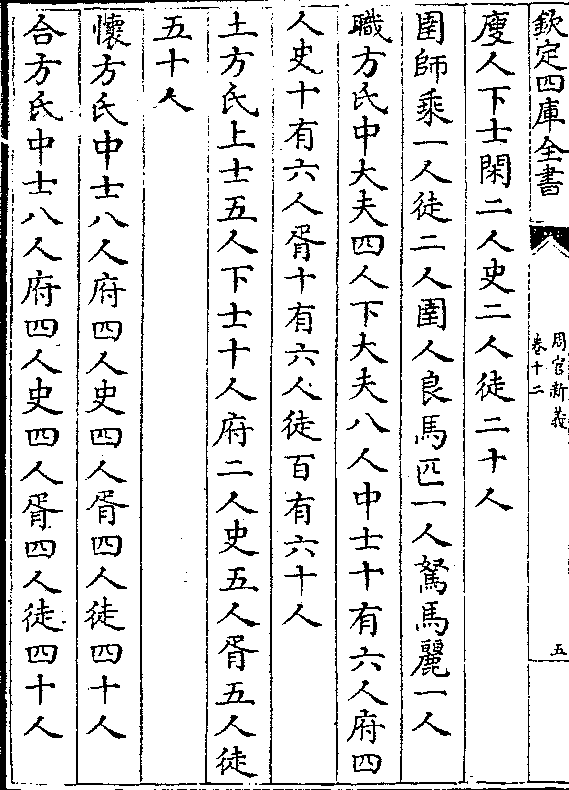 欽定四庫全書
周官新義
卷十二
五
廋人下士閑二人史二人徒二十人
圉師乘一人徒二人圉人良馬匹一人駑馬麗一人
職方氏中大夫四人下大夫八人中士十有六人府四
人史十有六人胥十有六人徒百有六十人
土方氏上士五人下士十人府二人史五人胥五人徒
五十人
懷方氏中士八人府四人史四人胥四人徒四十人
合方氏中士八人府四人史四人胥四人徒四十人